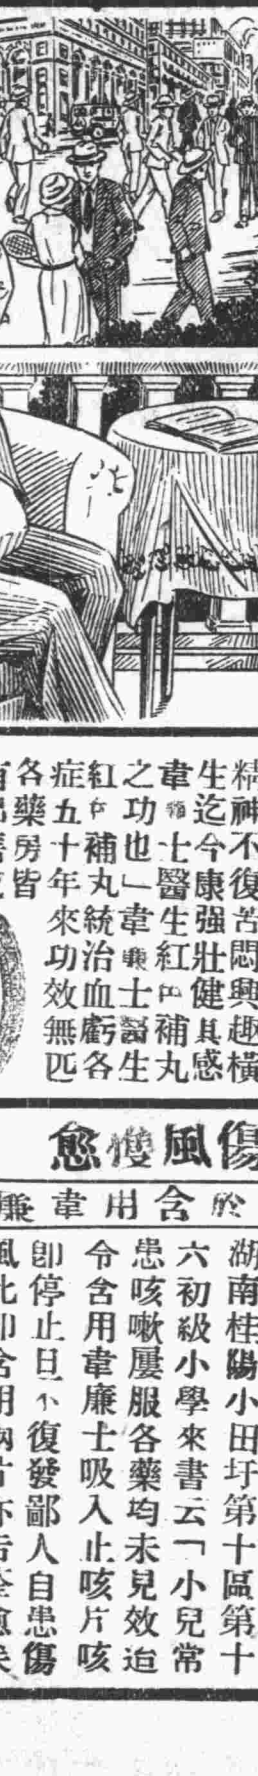 精神不復苦悶興趣橫
生迄今康强壯健其感
韋廉士醫生紅色補丸
之功也」韋廉士醫生
紅色補丸統治血虧各
症五十年來功效無匹
各藥房皆
傷風獲愈
於含用韋廉
湖南桂陽小田圩第十區第十
六初級小學來書云「小兒常
患咳嗽屢服各藥均未見效迨
令含用韋廉士吸入止咳片咳
卽停止且不復發鄙人自患傷